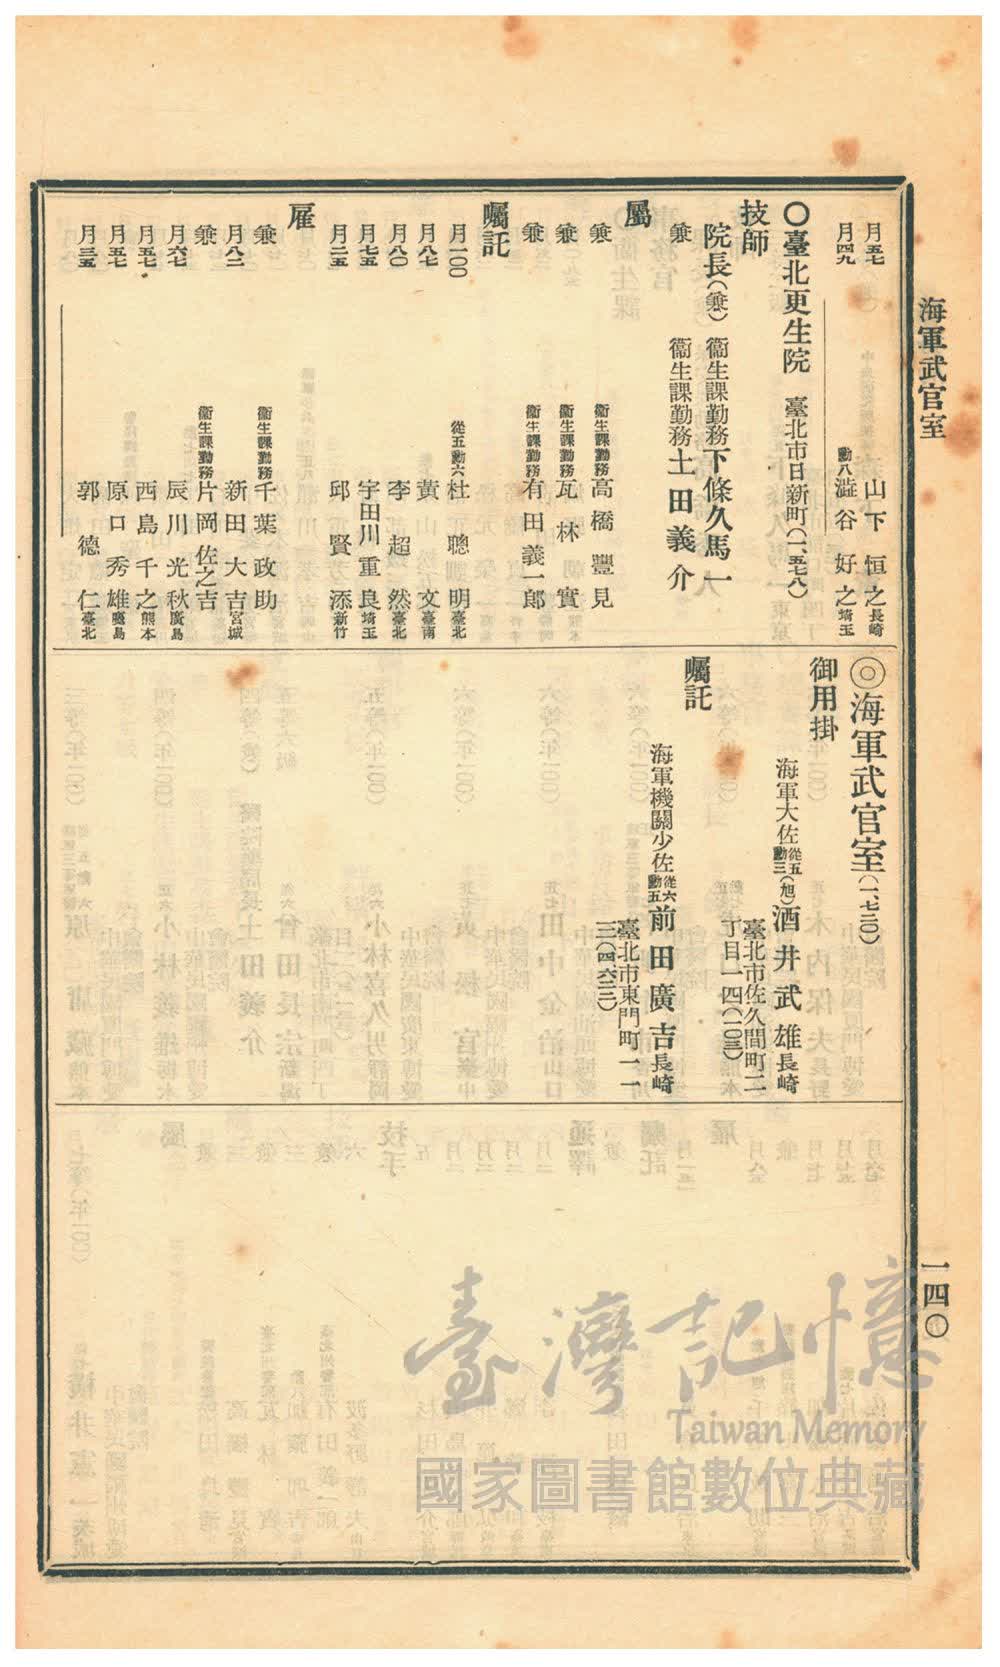 海軍武官室
一四〇
月五七 山下恒之 長崎
月四九 勳八 澁谷好之 埼玉
〇臺北更生院 臺北市日新町(一、五七八)
技師
院長(兼) 衞生課勤務 下條久馬一
兼 衞生課勤務 土田義介
屬
兼 衞生課勤務 高橋豐見
兼 衞生課勤務 瓦林實
兼 衞生課勤務 有田義一郎
囑託
月一〇〇 從五勳六 杜聰明 臺北
月八七 黃文 臺南
月八〇 李超然 臺北
月七五 宇田川重良 埼玉
月二五 邱賢添 新竹
雇
兼 衞生課勤務 千葉政助
月八二 新田大吉 宮城
兼 衞生課勤務 片岡佐之吉
月六七 辰川光秋 廣島
月五七 西島千之 熊本
月五七 原口秀雄 廣島
月三五 郭德仁 臺北
◎海軍武官室(一、七二〇)
御用掛
海軍大佐 從五勳三(旭) 酒井武雄 長崎
臺北市佐久間町二
丁目一四(二〇三)
囑託
海軍機關少佐 從六勳五 前田廣吉 長崎
臺北市東門町一一
三(四、六三三)
臺灣記憶
Taiwan Memory
國家圖書館數位典藏